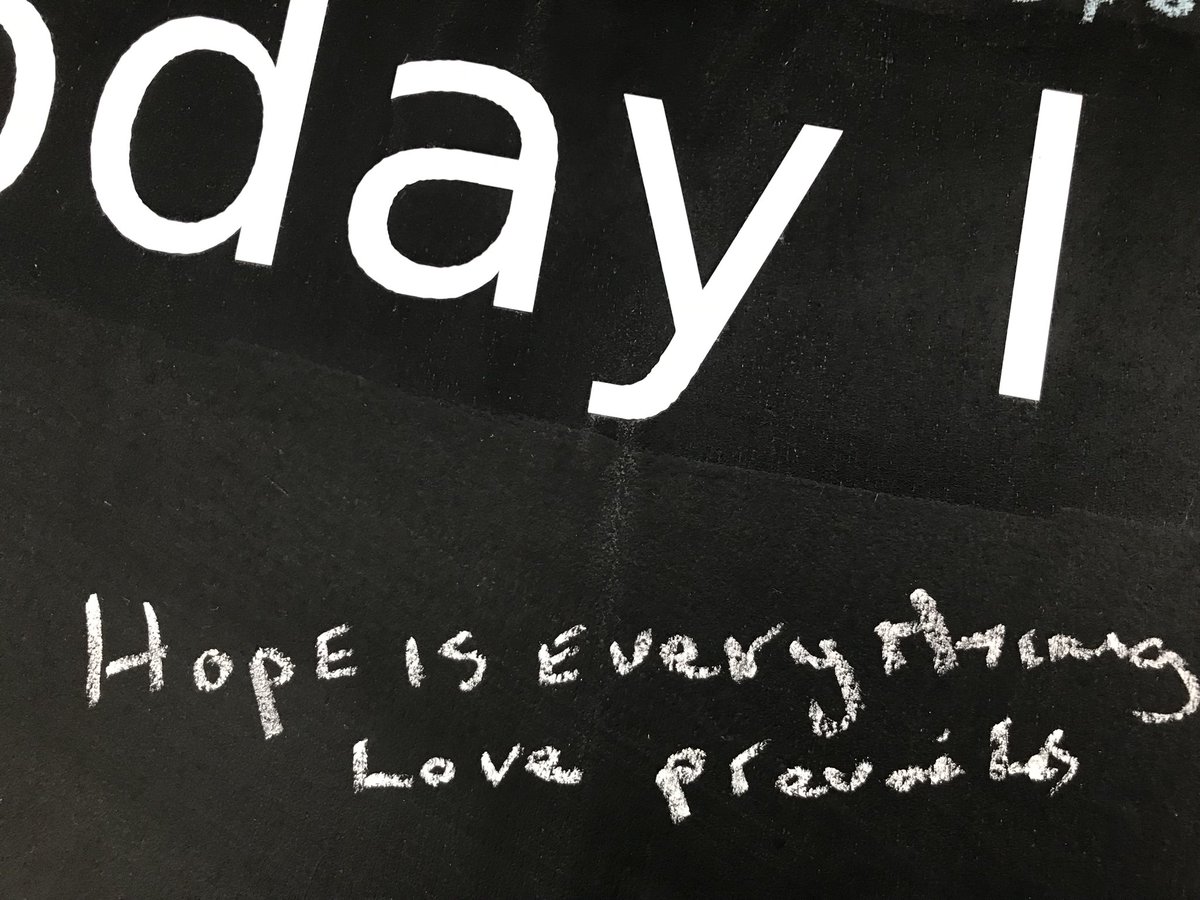 oday I
Hope is everything
Love prevails